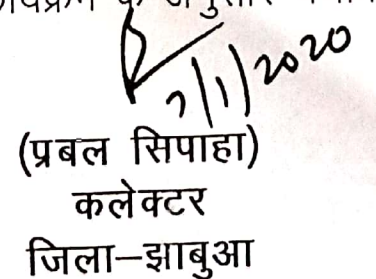 के अनुसार
7/1/2020
(प्रबल सिपाहा)
कलेक्टर
जिला–झाबुआ